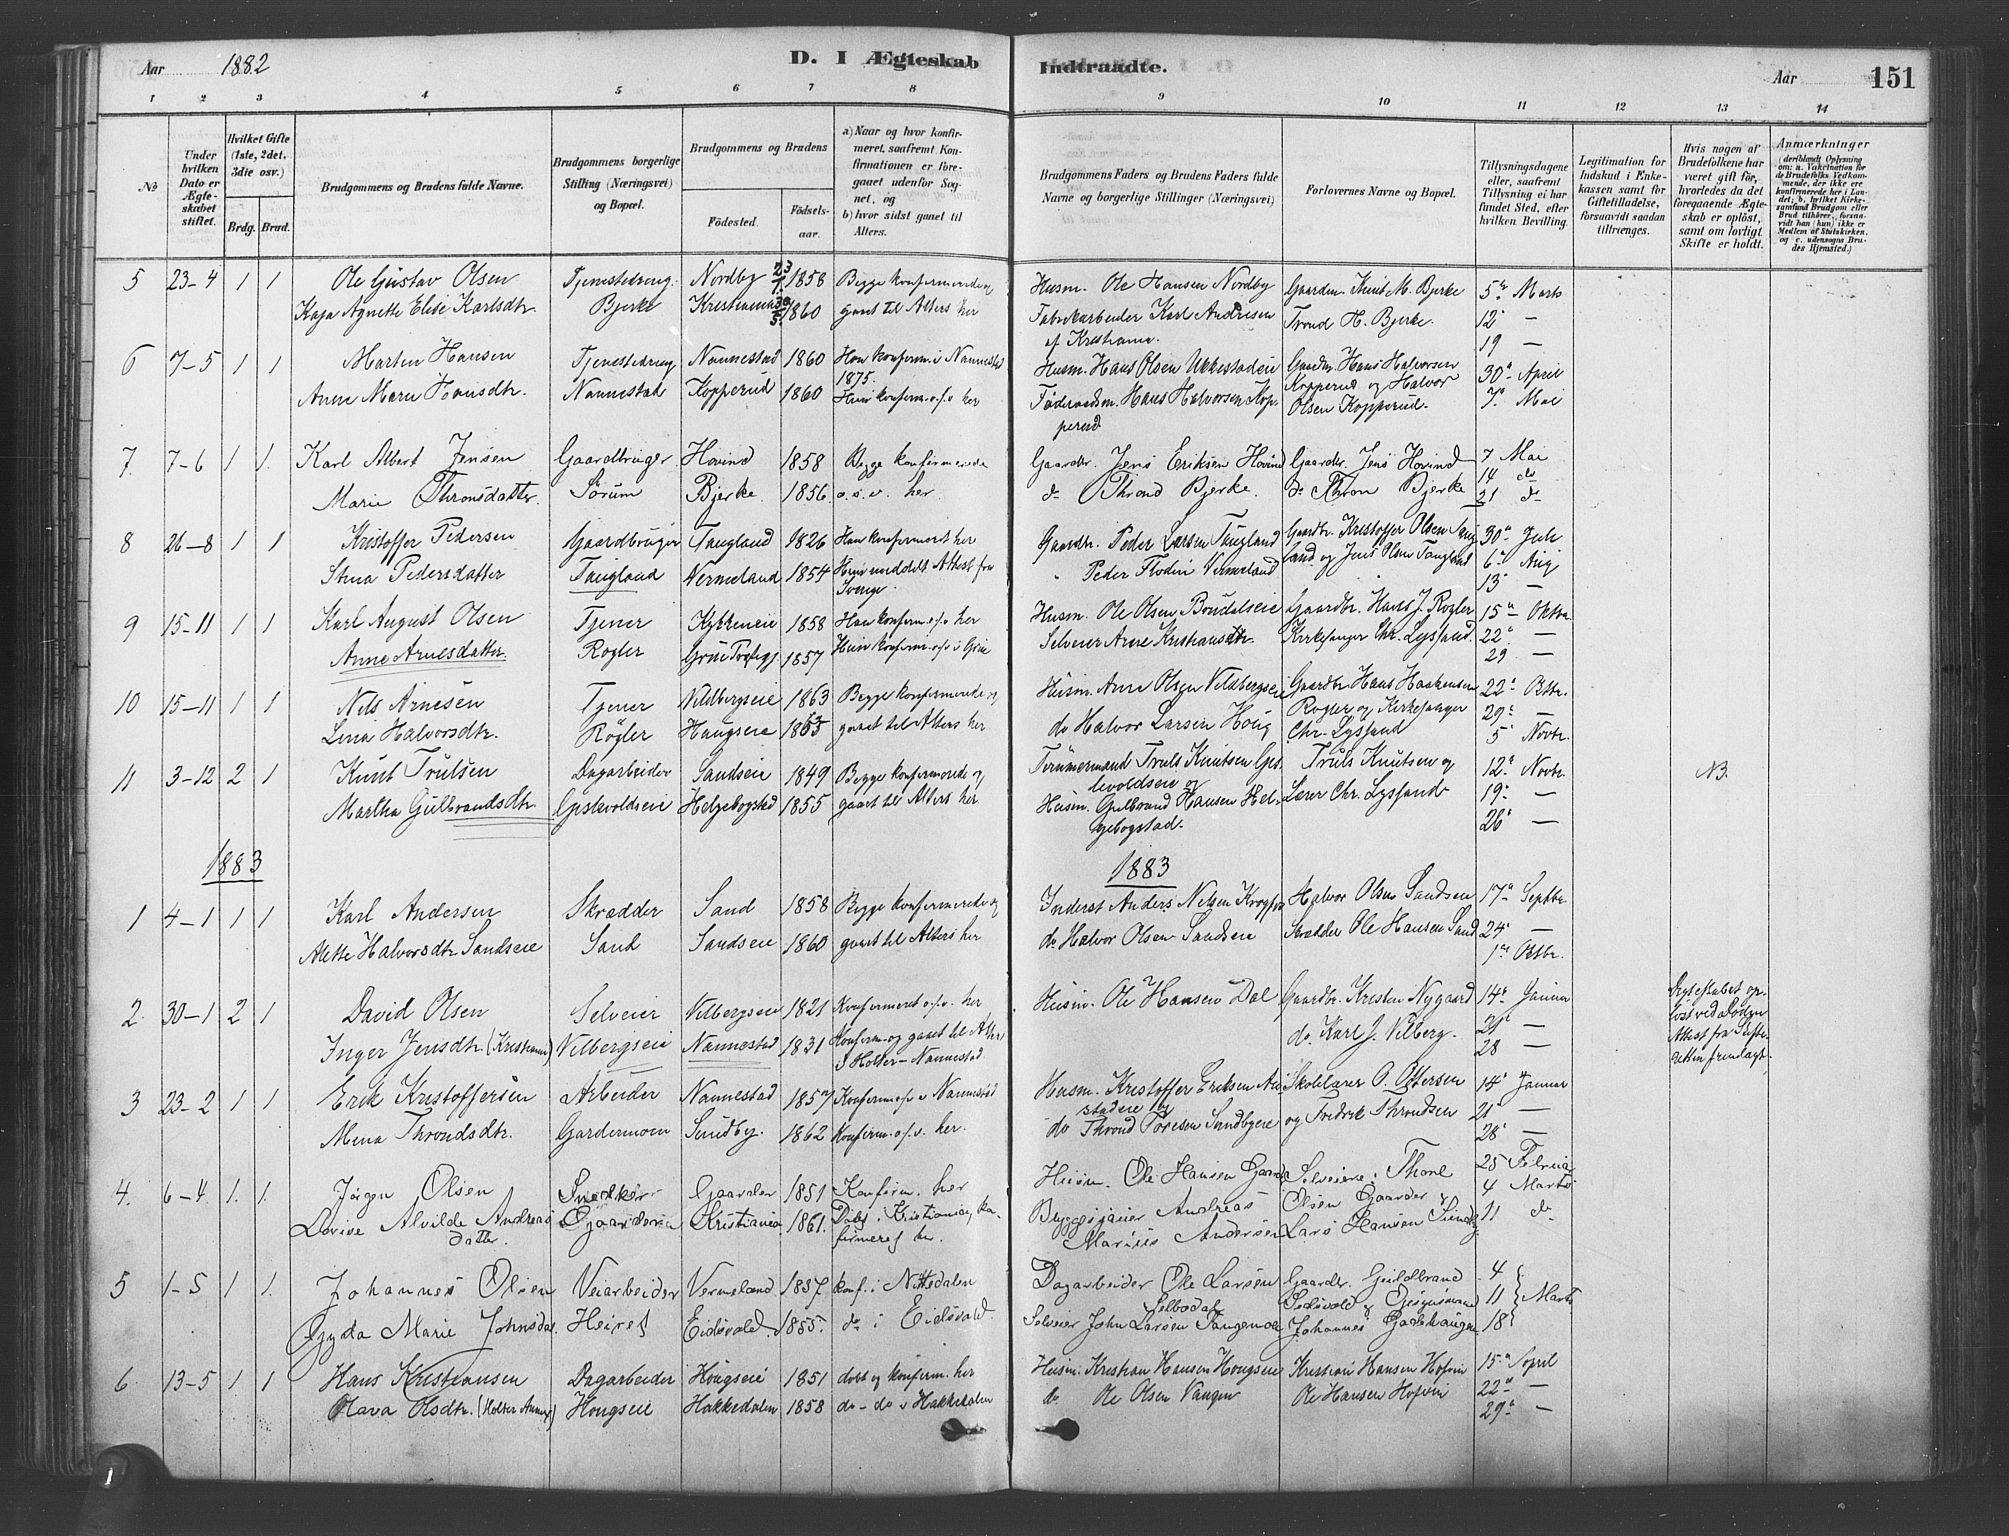 Aar 1882 D. I Ægteskab
Indtraadte. Aar 151
1 2 3 4 5 6 7 8
9 10 11 12 13 14
№
Under hvilken Dato er Ægteskabet stiftet.
Hvilket Gifte (1ste, 2det, 3die osv.)
Brdg. Brud.
Brudgommens og Brudens fulde Navne.
Brudgommens borgerlige Stilling (Næringsvei) og Bopæl.
Brudgommens og Brudens
Fødested. Fødselsaar.
a) Naar og hvor konfirmeret, saafremt Konfirmationen er foregaaet udenfor Sognet, og
b) hvor sidst gaaet til Alters.
Brudgommens Faders og Brudens Faders fulde Navne og borgerlige Stillinger (Næringsvei)
Forlovernes Navne og Bopæl.
Tillysningsdagene eller, saafremt Tillysning ei har fundet Sted, efter hvilken Bevilling.
Legitimation for Indskud i Enkekassen samt for Giftetilladelse, forsaavidt saadan tiltrænges.
Hvis nogen af Brudefolkene har været gift før, hvorledes da det foregaaende Ægteskab er opløst, samt om lovligt Skifte er holdt.
Anmærkninger
(deriblandt Oplysning om: a. Vakcination for de Brudefolks Vedkommende, der ikke ere konfirmerede her i Landet; b. hvilket Kirkesamfund Brudgom eller Brud tilhører, forsaavidt han (hun) ikke er Medlem af Statskirken, og c. udensogns Brudes Hjemsted.)
5 23-4 1 1 Ole Gustav Olsen Nordby 23/1 1858 Begge konfirmerede og
Husm. Ole Hansen Nordby Gaardm. Knut M. Bjerke 5te Marts
Kaja Agnette Elise Karlsdtr. Bjerke Kristiania 1860 gaaet til Alters her
Fabrikarbeider Karl Andresen Trond H. Bjerke. 12 —
af Kristiania. 19 —
6 7-5 1 1 Marten Hansen Tjenestedreng Nannestad 1860 Han konfirm. i Nannestad 1875.
Husm. Hans Olsen Gaardbr. Hans Halvorsen 30te April
Anne Marie Hansdtr. Nannestad Kopperud 1860 Hun konfirm. o.s.v her
Føderaadsm. Hans Halvorsen Kopperud Kopperud og Halvor Olsen Kopperud. 7 Mai
7. 7-6 1 1. Karl Albert Jensen Gaardbruger Hovind 1858 Begge konfirmerede
Gaardbr. Jens Eriksen Hovind Gaardbr. Jens Hovind 7 Mai
14 do
Marie Thronsdatter. Sørum Bjerke. 1856. o.s.v. her.
do Thrond Bjerke. do Thron Bjerke 21 do
8 26-8 1 1 Kristoffer Pedersen Gaardbruger Taugland 1826 Han konfirmeret her
Gaardbr. Peder Larsen Taugland Gaardbr. Kristoffer Olsen Taugland og Jens Olsen Taugland 30te Juli
Stina Pedersdatter Taugland Vermeland 1854 Hun meddelt Attest fra Sverige.
" Peder Flodin Vermeland 6te Aug
13 —
9 15-11 1 1 Karl August Olsen Tjener 1858 Han konfirm. o.s.v her
Husm. Ole Olsen Gaardbr. Hans J. Røgler 15te Oktbr.
Anne Arnesdatter Røgler 1857 Hun konfirm. o.s.v i Grue
Selveier Arne Kristiansdtr. Kirkesanger Chr. Lyssand. 22 —
29 —
10 15-11 1 1 Nils Arnesen Tjener Vilbergseie 1863 Begge konfirmerede og
Husm. Arne Olsen Vilbergseie Gaardbr Hans Haakensen 22 Oktbr.
Lina Halvorsdtr. Røgler Haugseie gaaet til Alters her
do Halvor Larsen Høug Røgler og Kirkesanger Chr. Lyssand 29 —
5 Novbr.
11 3-12 2 1 Knut Trulsen Dagarbeider Sandseie 1849 Begge konfirmerede og
Tømmermand Truls Knutsen Gislevoldseie og Truls Knutsen og 12te Novbr.
Martha Gulbrandsdtr. Helgebogstad 1855 gaaet til Alters her
Husm. Gulbrand Hansen Helgebogstad. Lærer Chr. Lyssand 19 —
26 —
NB.
1883
1883
1 4-1 1 1 Karl Andersen Skrædder Sand 1858 Begge konfirmerede og
Inderst Anders Nilsen Halvor Olsen Sandseie 17de Septbr.
Alette Halvorsdtr. Sandseie Sand Sandseie 1860 gaaet til Alters her
do Halvor Olsen Sandseie Skrædder Ole Hansen Sand 24 —
1ste Oktbr.
2. 30-1 2 1 David Olsen Selveier Vilbergseie 1821 Konfirmeret o.s.v. her
Husm. Ole Hansen Dal Gaardbr. Kristen Nygaard 14de Januar
Inger Jensdtr. (Kristiania) Vilbergseie Nannestad 1831 Konfirm. og gaaet til Alters i Holter-Nannestad
do. Karl J. Vilberg. 21 —
28 —
Ægteskabet opløst ved Døden Attest fra Skifteretten fremlagt.
3 23-2 1 1 Erik Kristoffersen Arbeider Nannestad 1857 Konfirm o.s.v i Nannestad
Husm. Kristoffer Eriksen Skolelærer O. Ottersen 14 Januar
Mina Throndsdtr. Gardermoen Sundby. 1862 Konfirm. o.s.v. her.
do Thrond Toresen Sundbyeie og Fredrik Throndsen 21 —
28 —
4. 6-4. 1. 1. Jørgen Olsen Snedker Gaarder 1851 Konfirm. her
Husm. Ole Hansen Selveiere: Thore Olsen Gaarder 25 Februar
Lovise Alvilde Andreasdatter. Gaarder Kristiania 1861. Døbt i Kristiania, konfirmeret her.
Andreas Marius Andersen Lars Hansen Sundby 4 Marts
11 do
5 1-5 1 1. Johannes Olsen Veiarbeider Vermeland 1857 konf. i Nittedalen
Dagarbeider Ole Larsen Gaardbr. Guldbrand 4
Gyda Marie Johnsdat. Eidsvold 1855. do i Eidsvold.
Selveier John Larsen Johannes 11 Marts
18
6 13-5 1. 1 Hans Kristiansen Dagarbeider Høugseie 1851 døbt og konfirm. her
Husm. Kristian Hansen Hougseie Kristian Hansen Hofvin 15de April
Olava Olsdtr. (Holter Annex) Hougseie Hakkedalen 1858 do - do i Hakkedalen
do. Ole Olsen Vangen Ole Hansen Hofvin 22 —
29 —